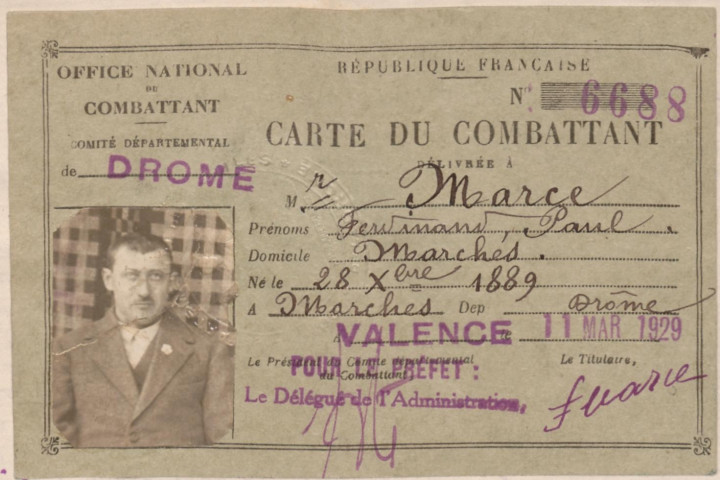 OFFICE NATIONAL
DU
COMBATTANT
COMITÉ DÉPARTEMENTAL
de DROME
RÉPUBLIQUE FRANÇAISE
N° 6688
CARTE DU COMBATTANT
DÉLIVRÉE À
M. r Marce
Prénoms Ferdinand, Paul.
Domicile Marches.
Né le 28 Xbre 1889
A Marches Dep Drôme
A VALENCE le 11 MAR 1929
Le Président du Comité départemental
du Combattant,
Le Titulaire,
POUR LE PRÉFET :
Le Délégué de l'Administration,
Marce